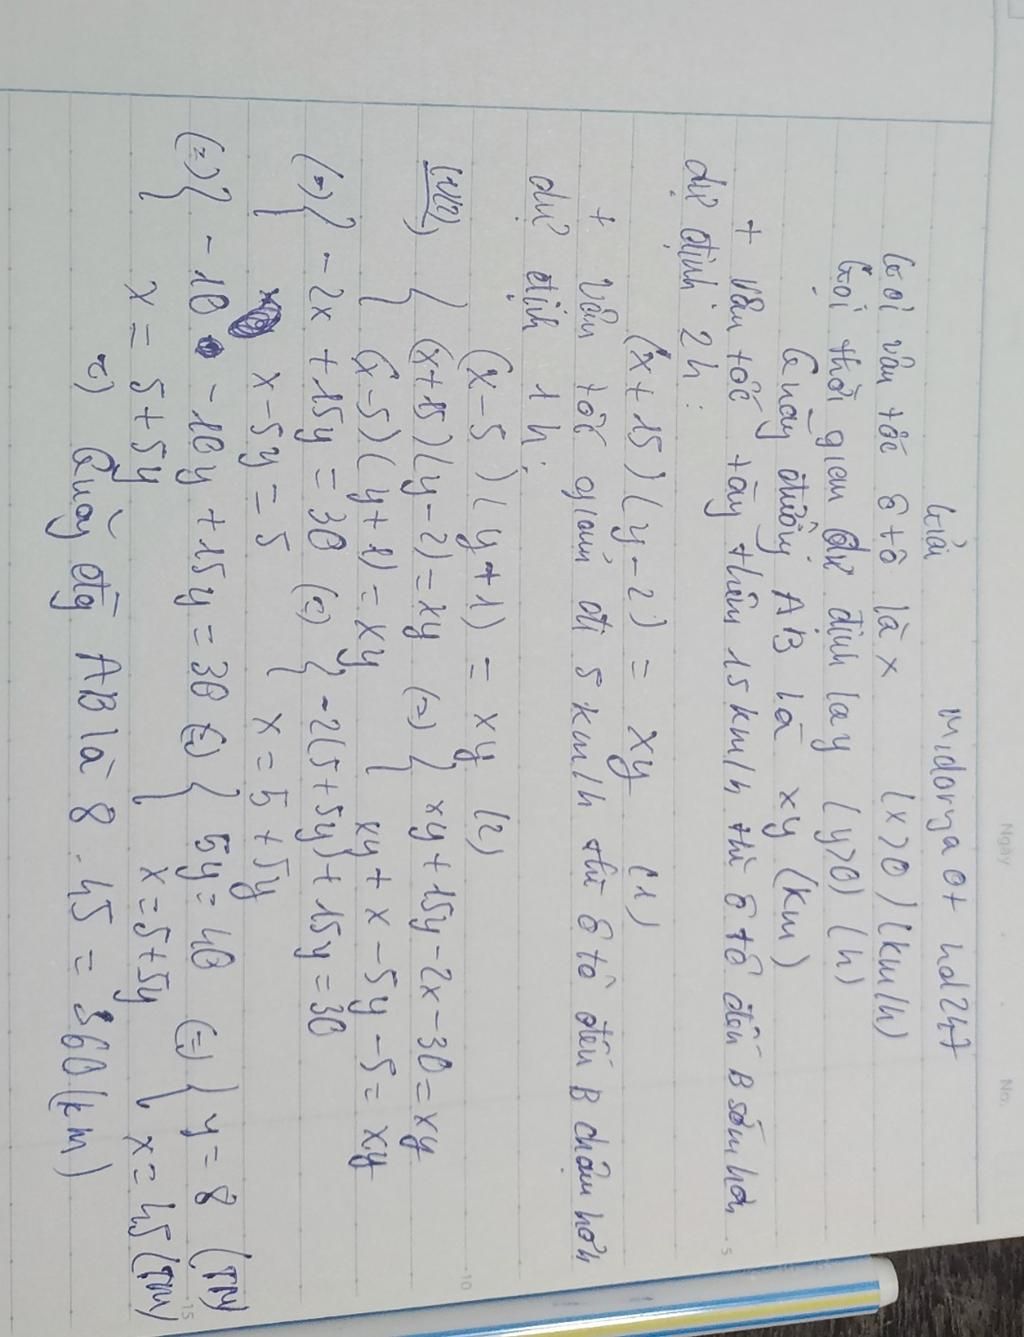 Ngày
No.
Giải
midorya ot hd247
Gọi vân tốc ô tô là x (x>0) (km/h)
Gọi thời gian dự định la y (y>0) (h)
Quãng đường AB là xy (km)
+ Vân tốc tăng thêm 15 km/h thì ô tô đến B sớm hơn
dự định 2h:
(x+15)(y-2) = xy (1)
+ Vân tốc giảm đi 5 km/h thì ô tô đến B chậm hơn
dự định 1h:
(x-5)(y+1) = xy (2)
(1)(2) { (x+15)(y-2)=xy (=) { xy+15y-2x-30=xy
(x-5)(y+1)=xy xy+x-5y-5=xy
(=) { -2x+15y=30 (=) { -2(5+5y)+15y=30
x-5y=5 x=5+5y
(=) { -10 -10y+15y=30 (=) { 5y=40 (=) { y=8 (TM)
x=5+5y x=5+5y x=45 (TM)
Quãg đg AB là 8.45=360(km)
5
10
15